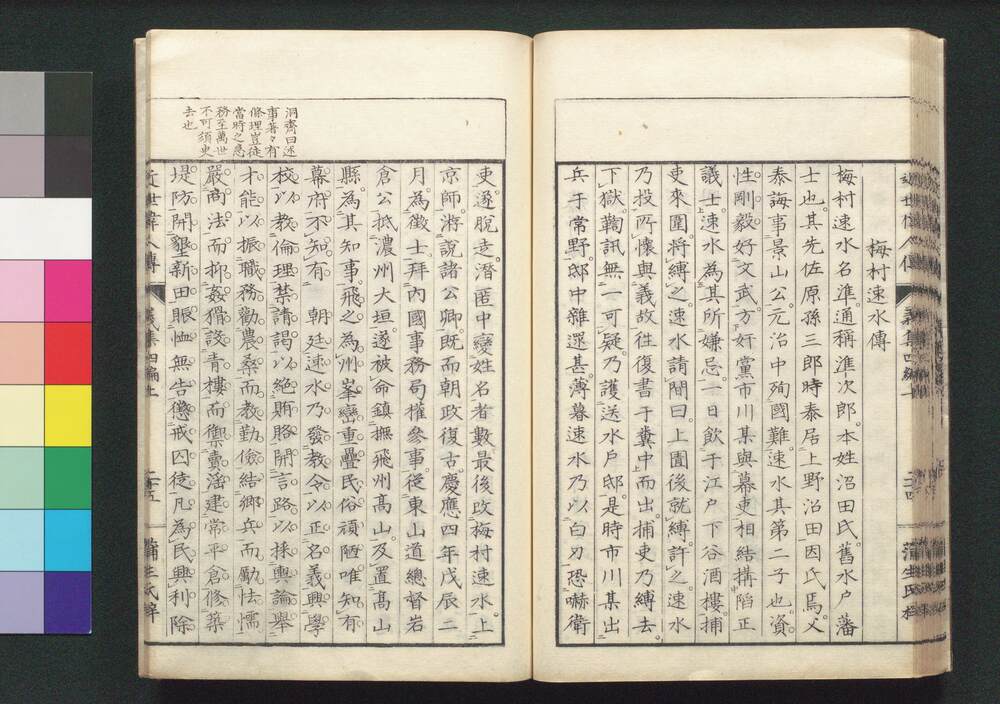 梅村速水傳
梅村速水名準通稱準次郎本姓沼田氏舊水戸藩
士也其先佐原孫三郎時泰居上野沼田因氏焉父
泰誨事景山公元治中殉國難速水其第二子也資
性剛毅好文武方奸黨市川某與幕吏相結搆陷正
議士速水為其所嫌忌一日飲于江戸下谷酒樓捕
吏來圍將縛之速水請間曰上圊後就縛許之速水
乃投所懷與義故往復書于糞中而出捕吏乃縛去
下獄鞫訊無一可疑乃護送水戸邸是時市川某出
兵于常野邸中雜還甚薄暮速水乃以白刃恐嚇衛
吏遂脱走潛匿中變姓名者數最後改梅村速水上
京師游說諸公卿既而朝政復古慶應四年戊辰二
月為徴士拜内國事務局權參事從東山道總督岩
倉公抵濃州大垣遂被命鎮撫飛州髙山及置髙山
縣為其知事飛之為州峯巒重疊民俗頑陋唯知有
幕府不知有朝廷速水乃發教令以正名義興學
校以教倫理禁請謁以絶賄賂開言路以採輿論舉
才能以振職務勸農桑而教勤儉結鄉兵而勵怯懦
嚴商法而抑姦猾設青樓而禦賣淫建常平倉修築
堤防開墾新田賑恤無告懲戒囚徒凡為民興利除
洞齋曰述
事著々有
條理豈徒
當時之急
務至萬世
不可須臾
去也
近世偉人傳
義集四編上
二十五
蒲生氏梓